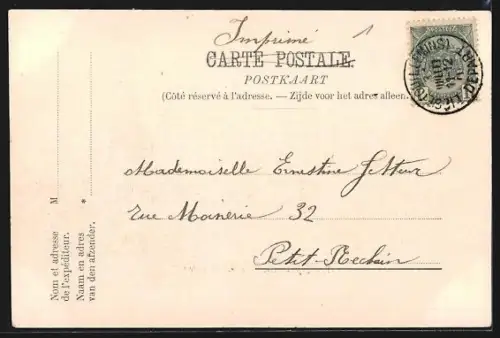 Imprimé
1
CARTE POSTALE.
POSTKAART
(Côté réservé à l'adresse. — Zijde voor het adres alleen.)
Mademoiselle Ernestine
rue Moinerie 32
Petit-Rechain
M
Nom et adresse
de l'expéditeur.
*
Naam en adres
van den afzender.